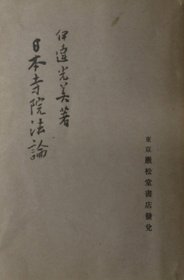 東京巖松堂書店發兌
伊達光美著
日本寺院法論